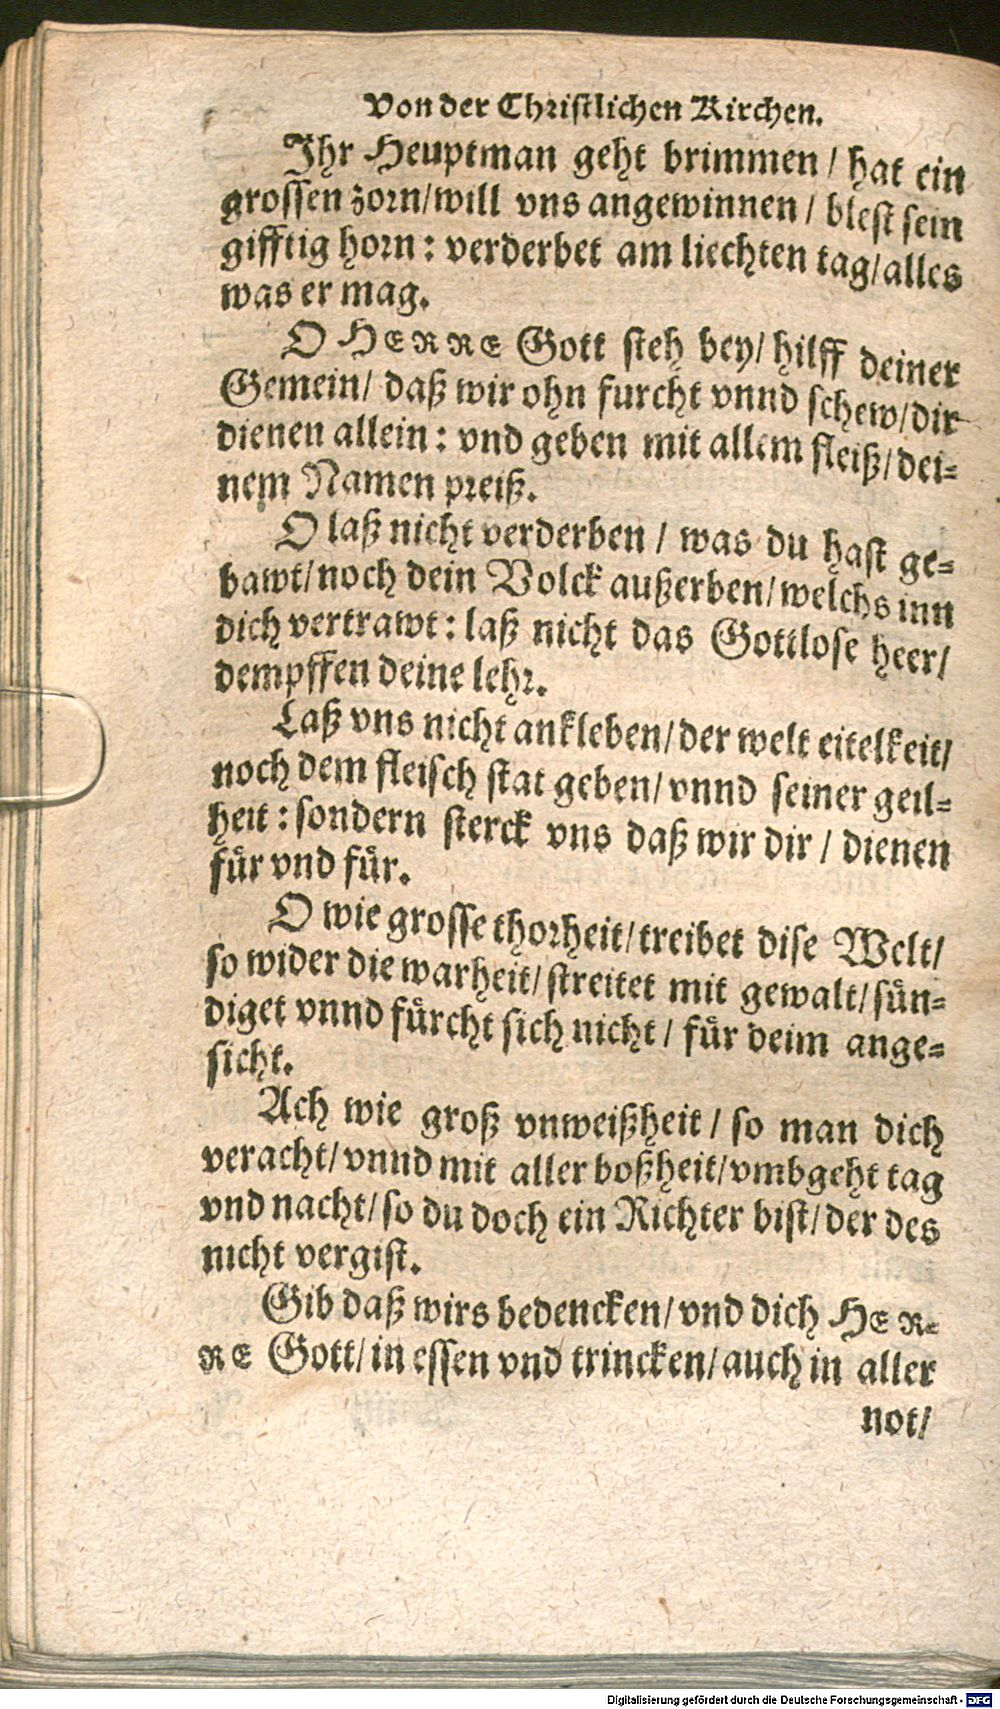 Von der Christlichen Kirchen.
Ihr Heuptman geht brimmen / hat ein
grossen zorn/will vns angewinnen / blest sein
gifftig horn : verderbet am liechten tag/alles
was er mag.
O HERRE Gott steh bey/ hilff deiner
Gemein/ daß wir ohn furcht vnnd schew/dir
dienen allein : vnd geben mit allem fleiß/dei=
nem Namen preiß.
O laß nicht verderben / was du hast ge=
bawt/noch dein Volck außerben/welchs inn
dich vertrawt : laß nicht das Gottlose heer/
dempffen deine lehr.
Laß vns nicht ankleben/der welt eitelkeit/
noch dem fleisch stat geben/vnnd seiner geil=
heit : sondern sterck vns daß wir dir / dienen
für vnd für.
O wie grosse thorheit/treibet dise Welt/
so wider die warheit/streitet mit gewalt/sün=
diget vnnd fürcht sich nicht / für deim ange=
sicht.
Ach wie groß vnweißheit / so man dich
veracht/vnnd mit aller boßheit/vmbgeht tag
vnd nacht/so du doch ein Richter bist/der des
nicht vergist.
Gib daß wirs bedencken/vnd dich HER=
RE Gott/in essen vnd trincken/auch in aller
not/
Digitalisierung gefördert durch die Deutsche Forschungsgemeinschaft - DFG